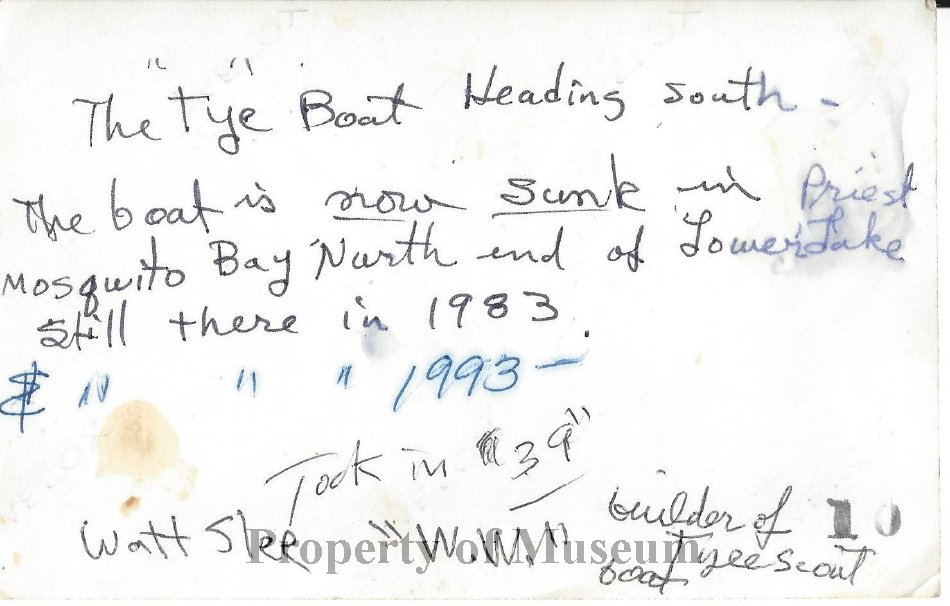 The "Tye" Boat Heading south -
The boat is now sunk in Priest
Mosquito Bay North end of Lower Lake
Still there in 1983.
& " " " 1993 -
Took in "39"
Watt Slee "W.W." builder of
Tyee scout
boat
10
Property of Museum